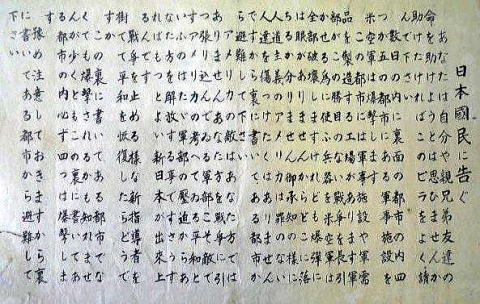 日本國民に告ぐ
あなたは自分や親兄弟友達の
命を助けようとは思ひませんか
助けたければこのビラをよく請
んで下さい
数日の内に裏面の都市の内四
つか五つの都市にある軍事施設を
米空軍は爆撃します
この都市には軍事施設や軍需
品を製造する工場があります軍
部がこの勝目のない戦争を長引
かせる為に使ふ兵器を米空軍は
全部破壊しますけれども爆弾に
は眼がありませんからどこに落
ちるか分りません御承知の様に
人道主義のアメリカは罪のない
人達を傷つけたくはありません
ですから裏に書いてある都市か
ら避難して下さい
アメリカの敵はあなた方では
ありませんあなた方を戦争に引
張り込んでゐる軍部こそ敵です
アメリカの考へてゐる平和とい
ふのはたゞ軍部の壓迫からあな
た方を解放する事ですさうすれ
ばもつとよい新日本が出来上る
んです
戦争を止める様な新指導者を
樹てて平和を恢復したらどうで
すか
この裏に書いてある都市でな
くても爆撃されるかも知れませ
んが少くともこの裏に書いてあ
る都市の内必ず四つは爆撃しま
す
豫め注意しておきますから裏
に書いてある都市から避難して
下さい